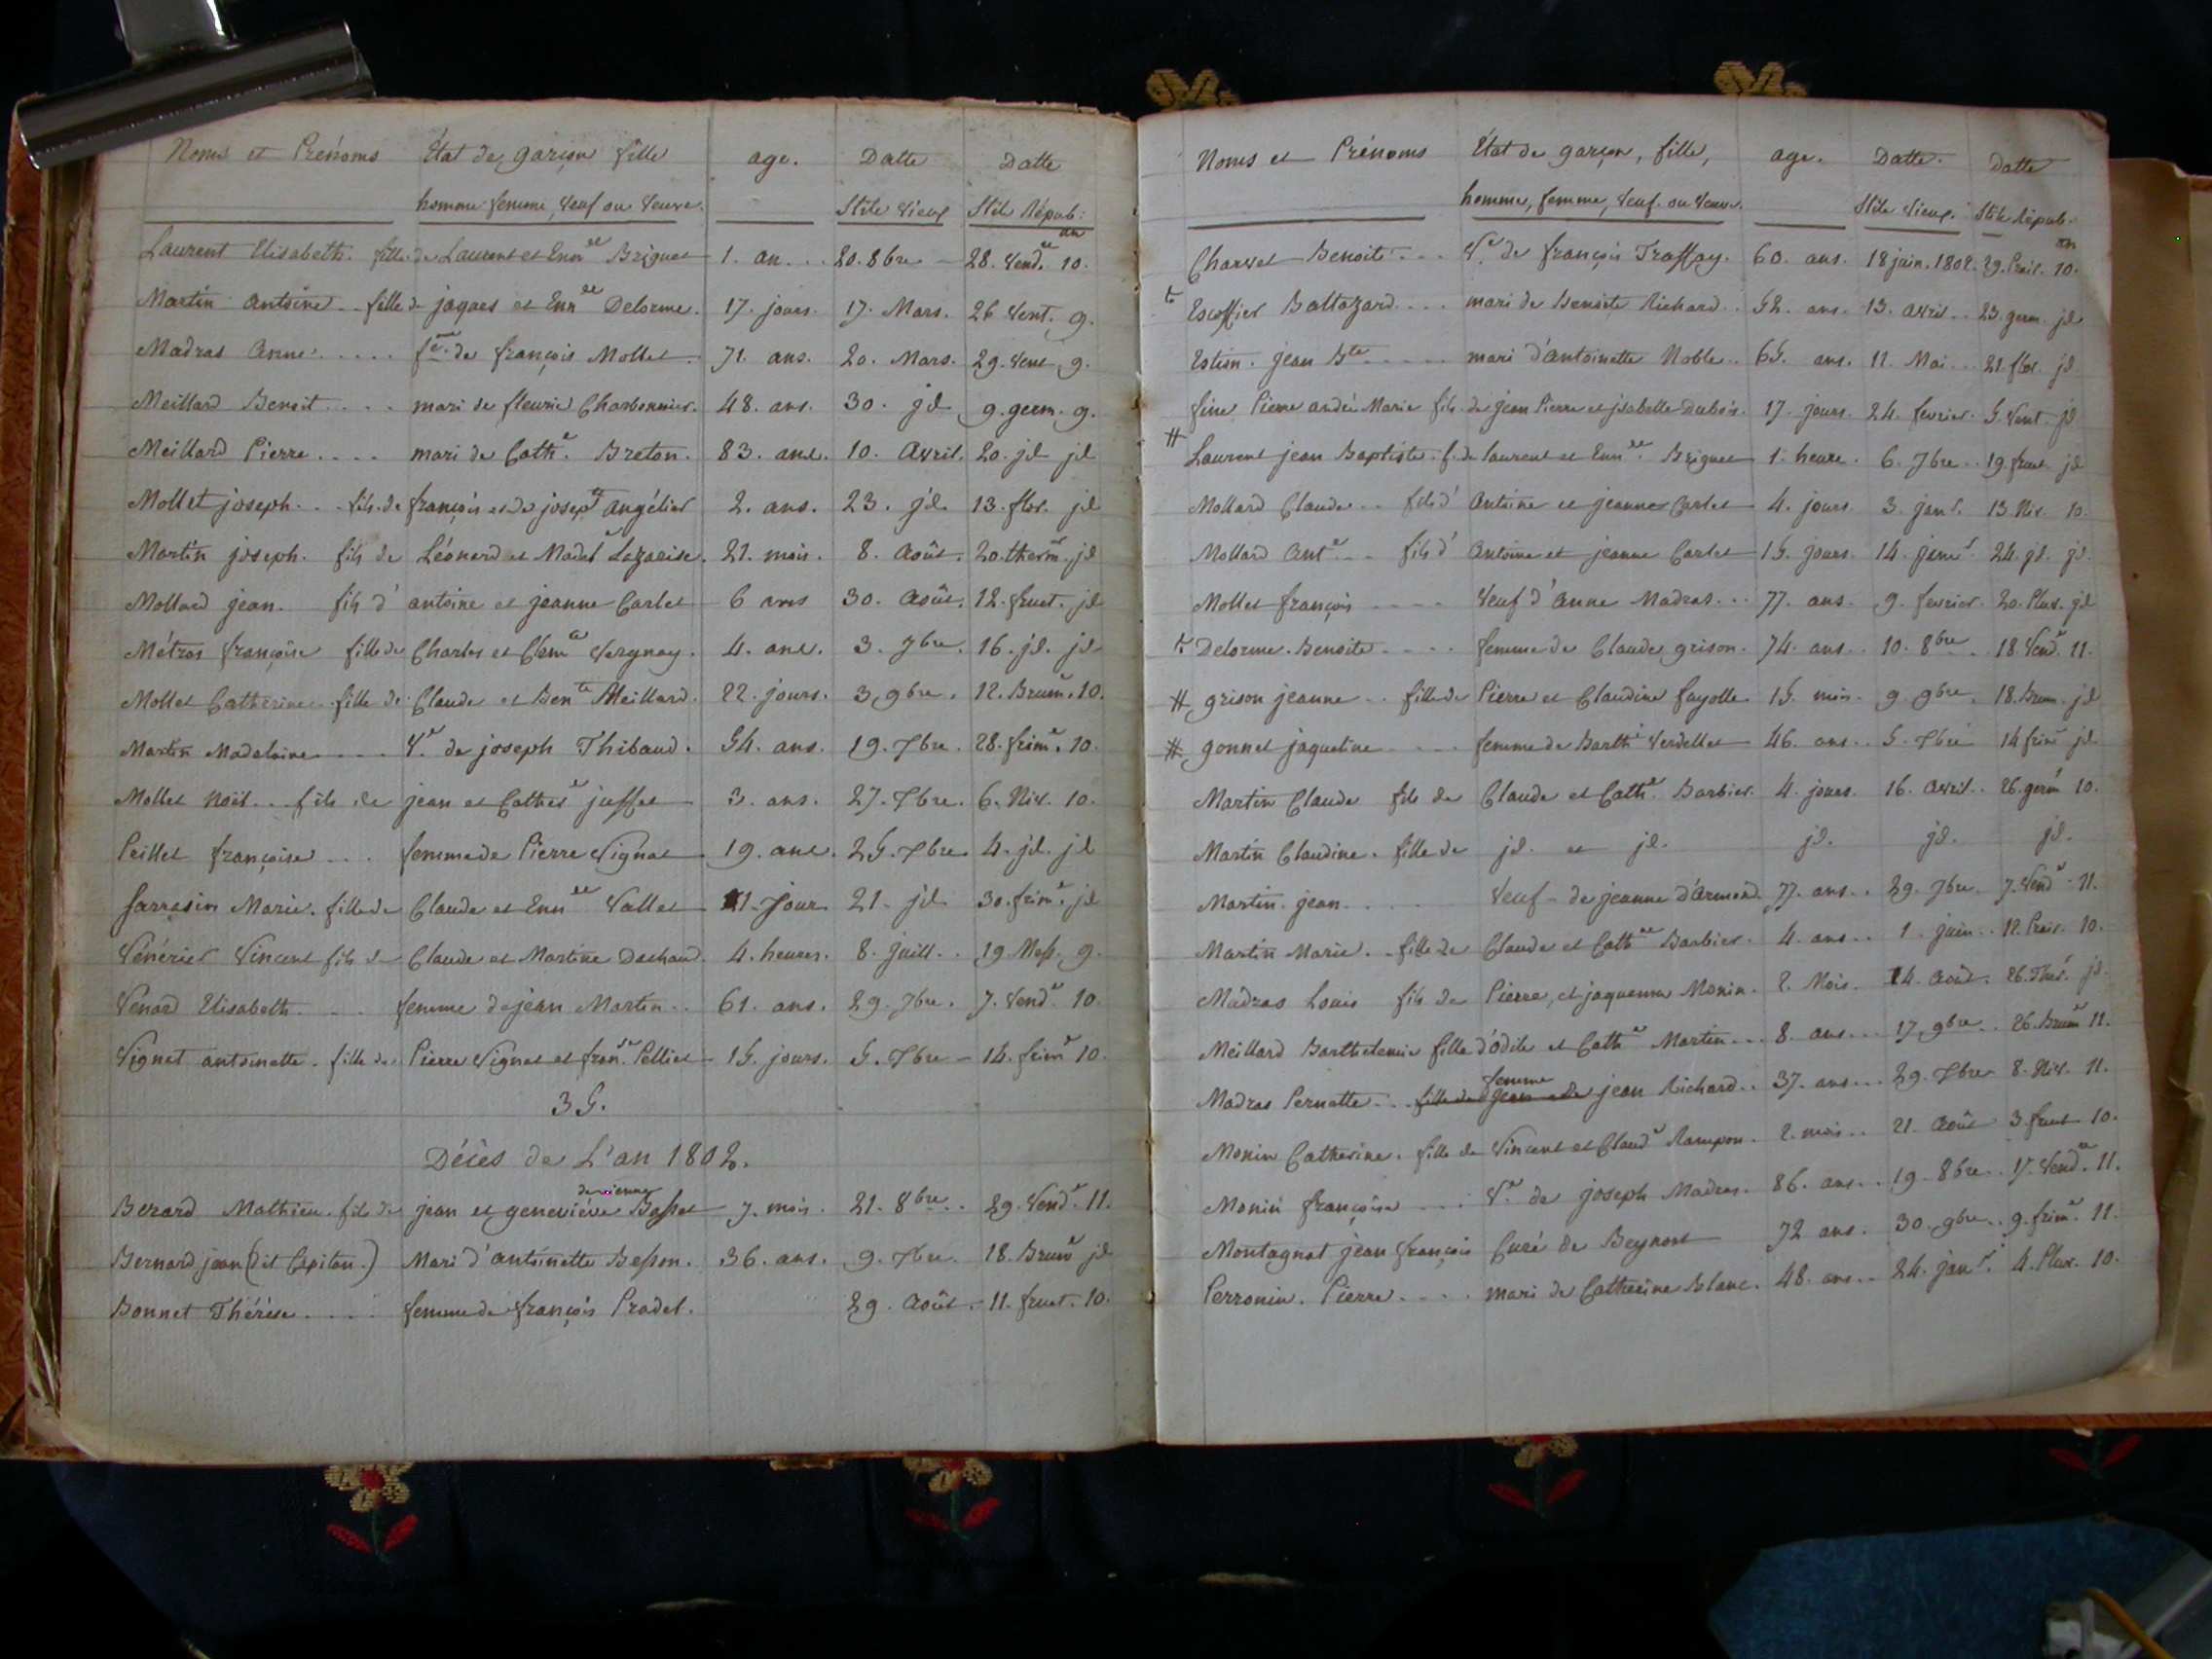 Noms et Prénoms État de garçon fille age. Datte Datte
homme femme, Veuf ou Veuve. Stile Vieux Stile Répub:
an
Laurent Elisabeth. fille de Laurent et Enn.de Briguet 1. an... 20. 8bre - 28. Vend.re 10.
Martin antoine.. fille de jaques et Enn.de Delorme. 17. jours. 17. Mars. 26 Vent. 9.
Madras Anne ..... fe. de françois Mollet. 71. ans. 20. Mars. 29. Vent 9.
Meillard Benoit .... mari de fleurie Charbonnier. 48. ans. 30. jd 9. germ. 9.
Meillard Pierre .... mari de Cath.e Breton. 83. ans. 10. Avril. 20. jd jd
Mollet joseph... fils de françois et de josepte angélier 2. ans. 23. jd. 13. flor. jd
Martin joseph. fils de Léonard et Madel.e Lazarise. 21. mois. 8. Août. 20. therm.r jd
Mollard jean. fils d' antoine et jeanne Carlet 6 ans 30. Août. 12. fruct. jd
Métras françoise fille de Charles et Clem.ce Vergnay. 4. ans. 3. 7bre. 16. jd. jd
Mollet Catherine. fille de Claude et Ben.te Meillard. 22. jours. 3. 9bre. 12. Brum.re 10.
Martin Madelaine .... V.e de joseph Thibaud. 54. ans. 19. Xbre. 28. frim.re 10.
Mollet Noël... fils de jean et Cather.e juffet 3. ans. 27. Xbre. 6. Niv. 10.
Peillet françoise ... femme de Pierre Vignat 19. ans. 25. Xbre. 4. jd. jd
Sarrasin Marie. fille de Claude et Enn.de Vallet 1. Jour 21. jd 30. frim.re jd
Vénérier Vincent fils de Claude et Martine Dechaud. 4. heures. 8. juill.. 19. Mess. 9.
Venard Elisabeth... femme de jean Martin.. 61. ans. 29. 7bre. 7. Vend.re 10.
Vignat antoinette. fille de. Pierre Vignat et fran.se Pelliet 15. jours. 5. Xbre - 14. frim.re 10.
35.
Décès de L'an 1802.
Berard Mathieu. fils de jean et geneviève Basset 7. mois. 21. 8bre.. 29. Vend.re 11.
Bernard jean (dit Capitan.) Mari d'antoinette Besson. 36. ans. 9. 9bre. 18. Brum.re jd
Bonnet Thérèse ..... femme de françois Pradel. 29. Août. 11. fruct. 10.
Noms et Prénoms État de garçon, fille, age. Datte. Datte
homme, femme, Veuf. ou Veuve. Stile Vieux. Stile Répub.
an
Charvet Benoite ... V.e de françois Traffay. 60. ans. 18 juin. 1802. 29. Prair. 10.
Escoffier Baltazard .... mari de Benoite Richard.. 52. ans. 13. Avril.. 23. germ. jd
Estion. jean Bte ..... mari d'antoinette Noble.. 65. ans. 11. Mai... 21. flor. jd
fine Pierre andré Marie fils de jean Pierre et jsabelle Dubois. 17. jours. 24. fevrier. 5. Vent. jd
# Laurent jean Baptiste. f. de laurent et Enn.de Briguet 1. heure. 6. 7bre.. 19. fruct. jd
Mollard Claude.. fils d' Antoine et jeanne Carlet 4. jours. 3. janr. 13. Niv. 10.
Mollard Ant.e... fils d' Antoine et jeanne Carlet 15. jours. 14. janv.r 24. jd. jd.
Mollet françois .... Veuf d'Anne Madras... 77. ans. 9. fevrier. 20. Pluv. jd
Delorme. Benoite .... femme de Claude grison. 74. ans.. 10. 8bre.. 18. Vend.re 11.
# grison jeanne.. fille de Pierre et Claudine fayolle. 15. mois. 9. 9bre. 18. Brum. jd
# gonnet jaqueline .... femme de Barth.i Verdellet 46. ans.. 5. Xbre 14 frim.re jd
Martin Claude fils de Claude et Cath.e Barbier. 4. jours. 16. Avril.. 26. germ 10.
Martin Claudine. fille de jd. et jd. jd. jd. jd.
Martin. jean...... Veuf - de jeanne d'Armand. 77. ans.. 29. 7bre. 7. Vend.re 11.
Martin Marie.. fille de Claude et Cath.ne Barbier. 4. ans.. 1. juin.. 12. Prair. 10.
Madras Louis fils de Pierre, et jaquema Monin. 2. Mois. 14. Août. 26. Ther. jd.
Meillard Barthelemie fille d'Odile et Cath.e Martin... 8. ans... 17. 9bre.. 26. Brum.re 11.
femme
Madras Pernette... fille de jean de jean Richard.. 37. ans... 29. Xbre 8. Niv. 11.
Monin Catherine. fille de Vincent et Claud.e Rampon. 2. mois.. 21. Août 3. fruct. 10.
Monin françoise .... V.e de joseph Madras. 86. ans.. 19. 8bre.. 17. Vend.re 11.
Montagnat jean françois Curé de Beynost 72 ans. 30. 9bre.. 9. frim.re 11.
Perronin. Pierre.... mari de Catherine Blanc. 48. ans.. 24. janr. 4. Pluv. 10.